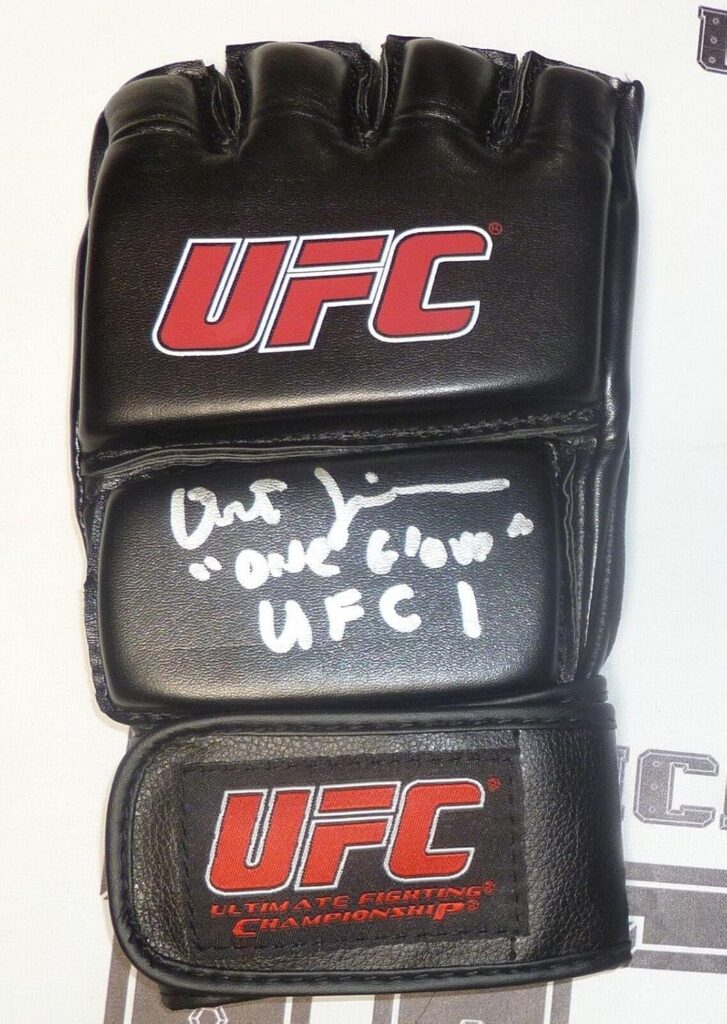 UFC®
Art
"ONE Glove"
UFC 1
UFC®
ULTIMATE FIGHTING®
CHAMPIONSHIP®